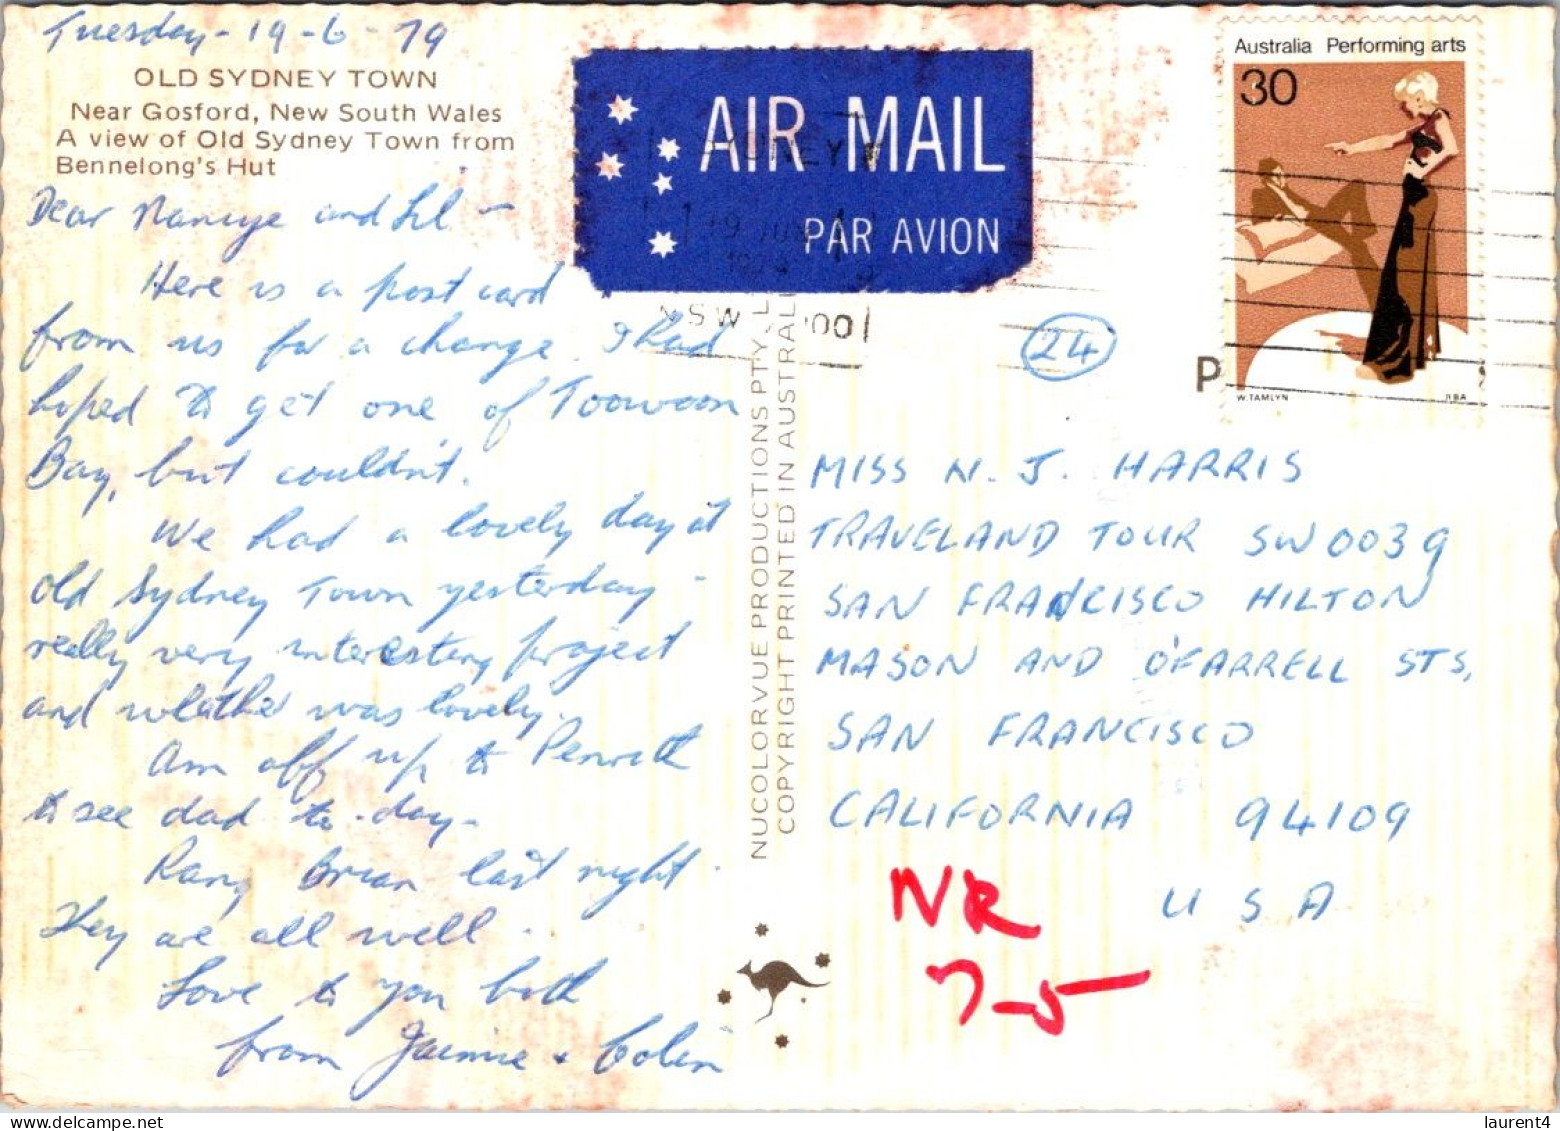 Tuesday - 19-6-79
OLD SYDNEY TOWN
Near Gosford, New South Wales
A view of Old Sydney Town from
Bennelong's Hut
Dear Nancye and Lil -
Here is a post card
from us for a change. I had
hoped to get one of Toowoon
Bay, but couldn't.
We had a lovely day at
Old Sydney Town yesterday -
really very interesting project
and weather was lovely.
Am off up to Penrith
to see dad to-day -
Rang Brian last night.
They are all well.
Love to you both
from Jaimie + Colin
AIR MAIL
PAR AVION
SYDNEY
19 JUN
1979
NSW
NUCOLORVUE PRODUCTIONS PTY. L
COPYRIGHT PRINTED IN AUSTRALI
Australia Performing arts
30
W.TAMLYN RBA
P
24
MISS N. J. HARRIS
TRAVELAND TOUR SW0039
SAN FRANCISCO HILTON
MASON AND O'FARRELL STS,
SAN FRANCISCO
CALIFORNIA 94109
U S A
NR
7-5
laurent4